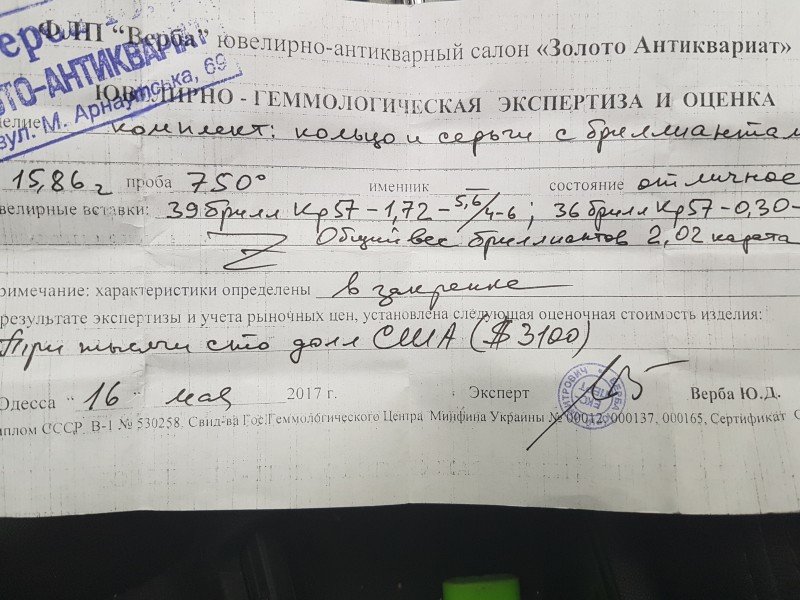 ФЛП “Верба” ювелирно-антикварный салон «Золото Антиквариат»
ОТО-АНТИКВАРИАТ
вул. М. Арнаутська, 69
ЮВЕЛИРНО - ГЕММОЛОГИЧЕСКАЯ ЭКСПЕРТИЗА И ОЦЕНКА
елие комплект: кольцо и серьги с бриллиантам
15,86 г проба 750° именник состояние отличное
велирные вставки: 39 брилл Кр57 – 1,72 – 5,6/4-6 ; 36 брилл Кр57 – 0,30 –
Общий вес бриллиантов 2,02 карата
римечание: характеристики определены в закрепке
результате экспертизы и учета рыночных цен, установлена следующая оценочная стоимость изделия:
Три тысячи сто долл США ($ 3100)
Одесса “ 16 ” мая 2017 г. Эксперт Верба Ю.Д.
иплом СССР В-1 № 530258. Свид-ва Гос.Геммологического Центра Минфина Украины № 00012, 000137, 000165, Сертификат С